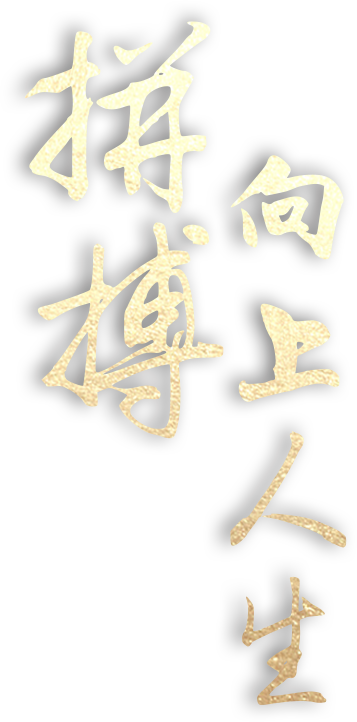 拼搏
向上人生